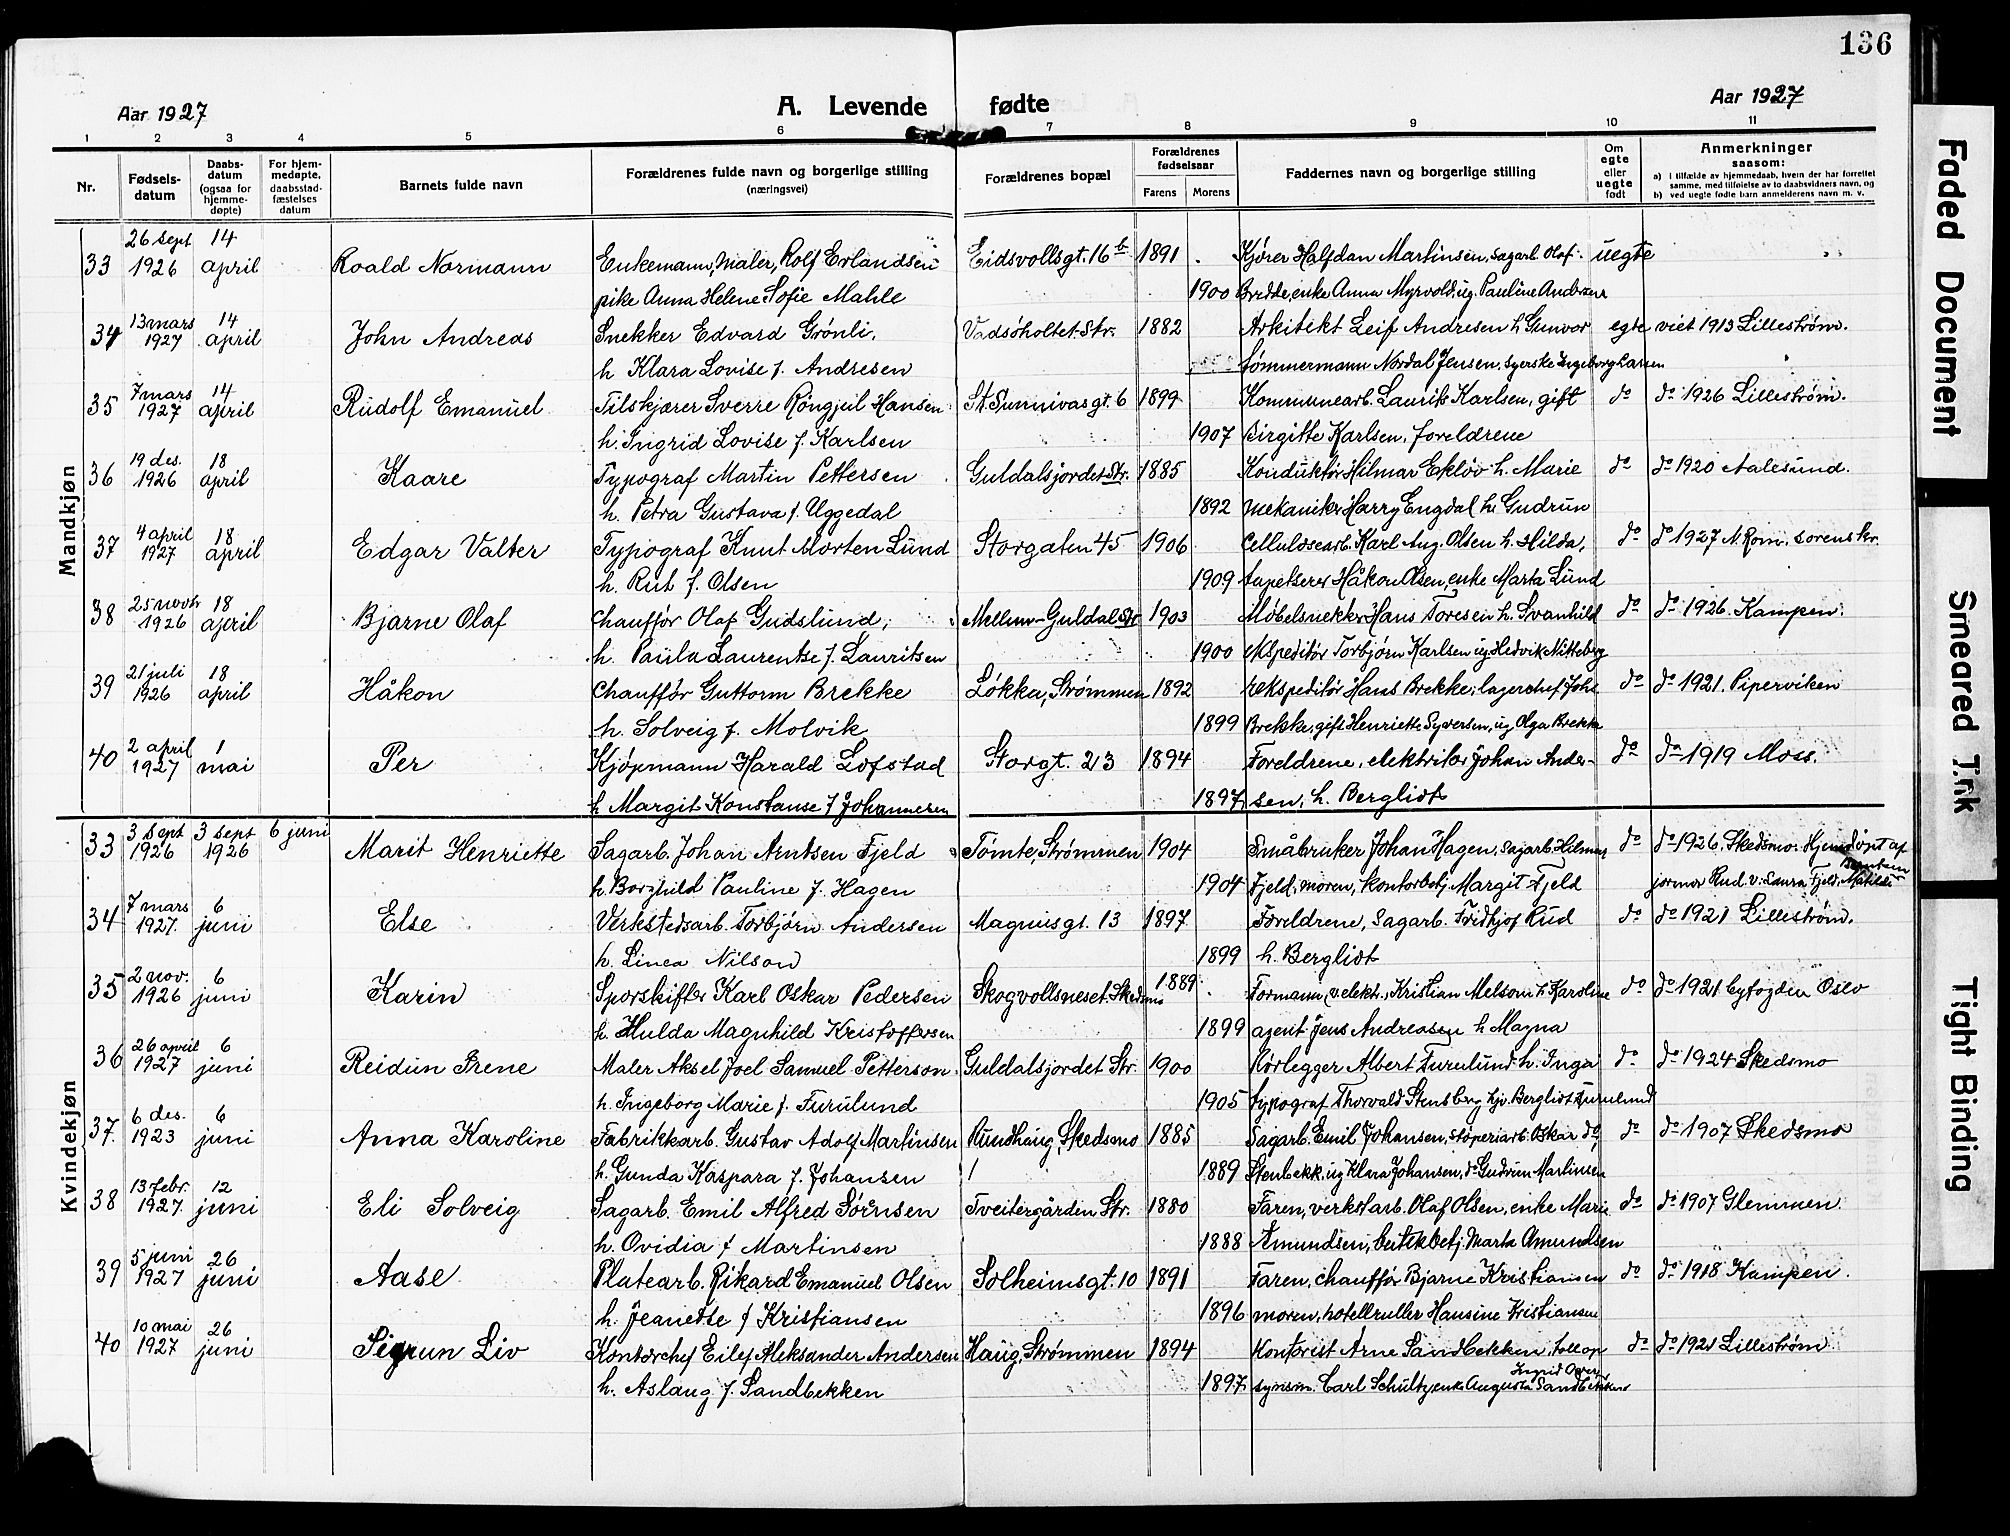 136
Aar 1927
A. Levende fødte
Aar 1927
1 2 3 4 5 6 7 8 9 10 11
Nr.
Fødsels-
datum
Daabs-
datum
(ogsaa for
hjemme-
døpte)
For hjem-
medøpte,
daabsstad-
fæstelses
datum
Barnets fulde navn
Forældrenes fulde navn og borgerlige stilling
(næringsvei)
Forældrenes bopæl
Forældrenes
fødselsaar
Farens Morens
Faddernes navn og borgerlige stilling
Om
egte
eller
uegte
født
Anmerkninger
saasom:
a) i tilfælde av hjemmedaab, hvem der har forrettet
samme, med tilføielse av to daabsvidners navn, og
b) ved uegte fødte barn anmelderens navn m. v.
Mandkjøn
26 sept 14
33 1926 april Roald Normann Enkemann, Maler, Rolf Erlandsen Eidsvollsgt. 16 b 1891 Kjører Halfdan Martinsen, sagarb. Olaf uegte
pike Anna Helene Sofie Mahle 1900 Bredde, enke Anna Myrvold, ug. Pauline Andersen
13 mars 14
34 1927 april John Andreas Snekker Edvard Grønli, Vadsøholtet Str. 1882 Arkitekt Leif Andresen h. Gunvor egte viet 1913 Lillestrøm.
h. Klara Lovise f. Andresen tømmermann Nordal Jensen, syerske Ingeborg Larsen
7 mars 14
35 1927 april Rudolf Emanuel Tilskjærer Sverre Røngjul Hansen St. Sunnivasgt. 6 1899 Kommunearb. Laurits Karlsen, gift do do 1926 Lillestrøm.
h. Ingrid Lovise f. Karlsen 1907 Birgitte Karlsen, foreldrene
19 des. 18
36 1926 april Kaare Typograf Martin Pettersen Guldalsjordet Str. 1885 Konduktør Hilmar Ekløv h. Marie do do 1920 Aalesund.
h. Petra Gustava f. Uggedal 1892 mekaniker Harry Engdal h. Gudrun
4 april 18
37 1927 april Edgar Valter Typograf Knut Morten Lund Storgaten 45 1906 Cellulosearb. Karl Aug. Olsen h. Hilda, do do 1927 N. Rom. sorenskr.
h. Rut f. Olsen 1909 tapetserer Håkon Olsen, enke Marta Lund
25 novbr 18
38 1926 april Bjarne Olaf Chauffør Olaf Gudslund, Mellum-Guldal Str 1903 Møbelsnekker Hans Toresen h. Svanhild do do 1926 Kampen.
h. Paula Laurentse f. Lauritsen 1900 ekspeditør Torbjørn Karlsen ug. Hedvik Nitteberg
21 juli 18
39 1926 april Håkon Chauffør Guttorm Brekke Løkka, Strømmen 1892 Ekspeditør Hans Brekke, lagerchef Johs do do 1921. Piperviken
h. Solveig f. Molvik 1899 Brekke, gift Henriette Syversen, ug. Olga Brekke
2 april 1
40 1927 mai Per Kjøpmann Harald Lofstad Storgt. 23 1894 Foreldrene, elektriker Johan Ander- do do 1919 Moss.
h. Margit Konstanse f. Johannesen 1897 sen, h. Bergliot
Kvindekjøn
3 sept 3 sept 6 juni
33 1926 1926 Marit Henriette Sagarb. Johan Arntsen Fjeld Tomte, Strømmen 1904 Småbruker Johan Hagen, sagarb. Hilmar do do 1926. Skedsmo. Hjemdøpt af
h. Borghild Pauline f. Hagen 1904 Fjeld, moren, kontorbetj. Margit Fjeld jormor Rud v. Laura Fjeld, Matilde Berntsen
7 mars 6
34 1927. juni Else Verkstedsarb. Torbjørn Andersen Magnusgt. 13 1897 Foreldrene, sagarb. Fridtjof Rud do do 1921 Lillestrøm.
h. Linea Nilson 1899 h. Bergliot
2 nov. 6
35 1926 juni Karin Sporskifter Karl Oskar Pedersen Skogvollsneset Skedsmo 1889 Formann v. elekt., Kristian Melsom h. Karoline do do 1921 byfogden Oslo
h. Hulda Magnhild Kristoffersen 1899 agent Jens Andreasen h. Magna
26 april 6
36 1927 juni Reidun Irene Maler Aksel Joel Samuel Petterson Guldalsjordet Str. 1900 Rørlegger Albert Furulund h. Inga do do 1924 Skedsmo
h. Ingeborg Marie f. Furulund 1905 typograf Thorvald Stensberg, hjv. Bergliot Furulund
6 des. 6
37. 1923 juni Anna Karoline Fabrikkarb. Gustav Adolf Martinsen Rundhaug, Skedsmo 1885 Sagarb. Emil Johansen, støperiarb. Oskar do, do do 1907 Skedsmo
h. Gunda Kaspara f. Johansen 1889 Stenbekk, ug. Klara Johansen, do Gudrun Martinsen
13 febr. 12
38 1927. juni Eli Solveig Sagarb. Emil Alfred Sørensen Tveitergården Str. 1880 Faren, verkst.arb. Olaf Olsen, enke Marie do do 1907 Glemmen.
h. Ovidia f Martinsen 1888 Amundsen, butikbetj. Marta Amundsen
5 juni 26
39 1927 juni Aase Platearb. Rikard Emanuel Olsen Solheimsgt. 10 1891 Faren, chauffør Bjarne Kristiansen do do 1918 Kampen.
h. Jeanette f Kristiansen 1896 moren, hotellruller Hansine Kristiansen
10 mai 26
40 1927 juni Sigrun Liv Kontorchef Eilef Aleksander Andersen Haug, Strømmen 1894 Kontorist Arne Sandbekken, tollop do do 1921 Lillestrøm
h. Aslaug f. Sandbekken 1897 synsm. Carl Schultz, enke Augusta Sandbekken Ingrid
Faded Document
Smeared Ink
Tight Binding